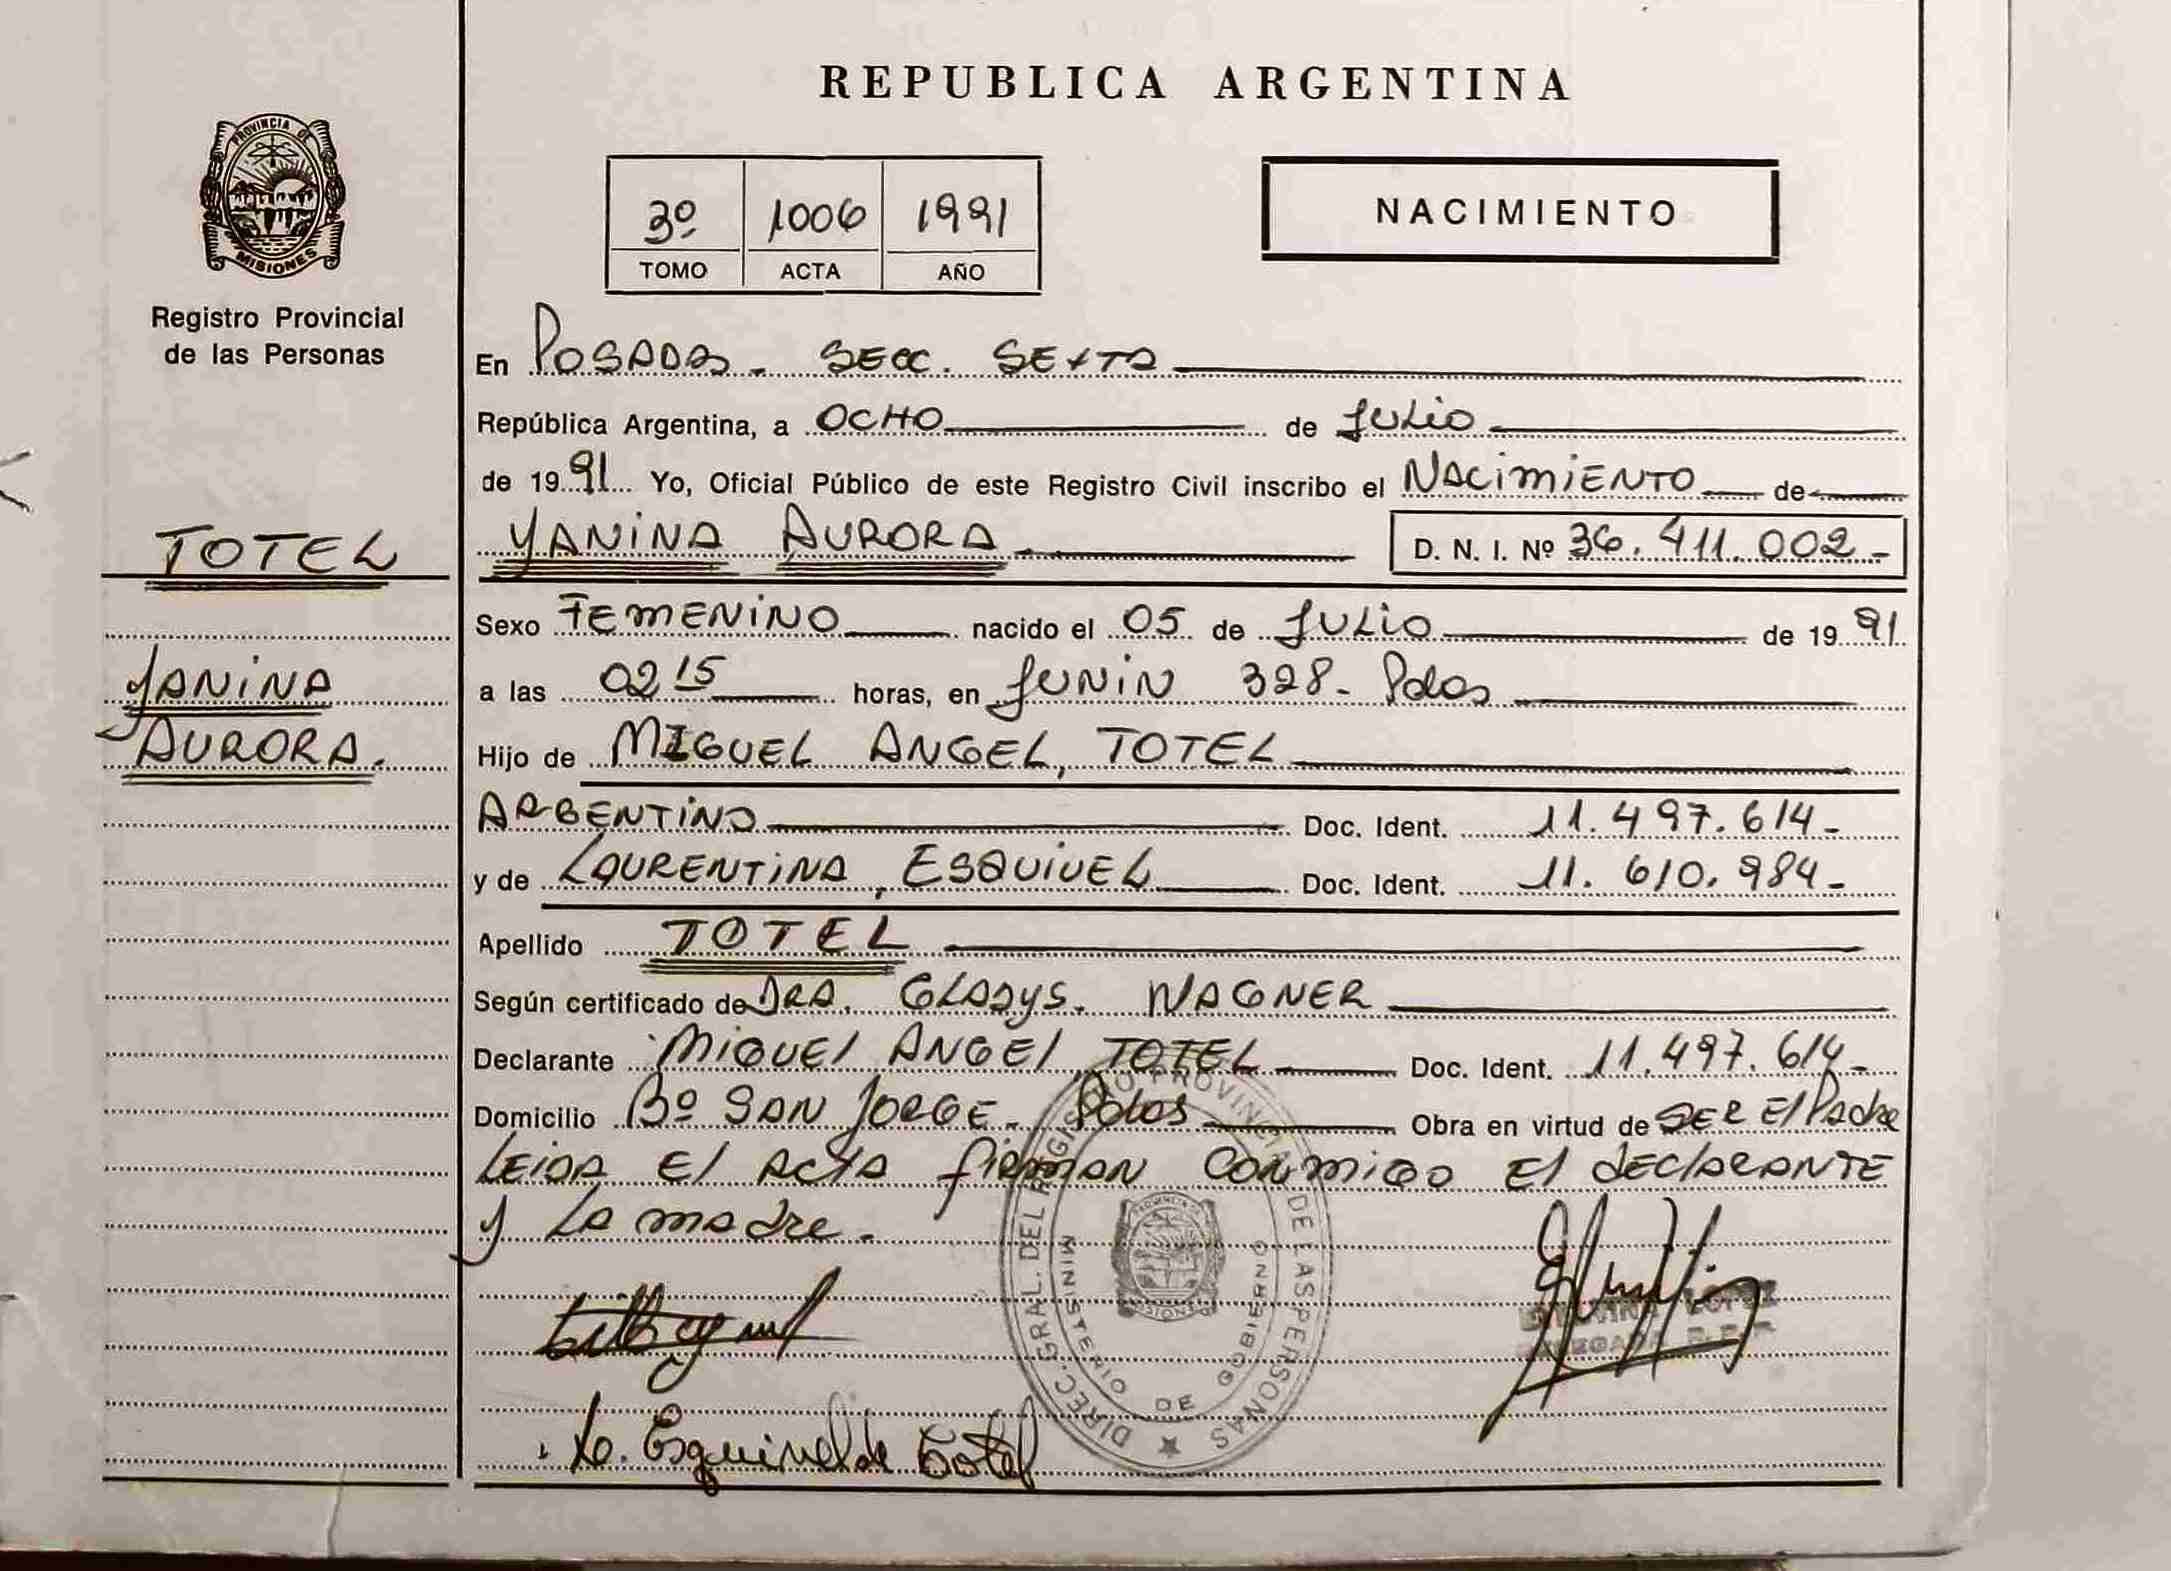 REPUBLICA ARGENTINA
PROVINCIA DE
MISIONES
Registro Provincial
de las Personas
3º 1006 1991
TOMO ACTA AÑO
NACIMIENTO
En POSADAS - SECC. SEXTA
República Argentina, a OCHO de JULIO
de 1991 Yo, Oficial Público de este Registro Civil inscribo el NACIMIENTO de
TOTEL
YANINA AURORA. D. N. I. Nº 36.411.002-
Sexo FEMENINO nacido el 05 de JULIO de 1991
YANINA
a las 02 15 horas, en JUNIN 328- Pdas
AURORA.
Hijo de MIGUEL ANGEL, TOTEL
ARGENTINO Doc. Ident. 11.497.614-
y de LAURENTINA, ESQUIVEL Doc. Ident. 11.610.984-
Apellido TOTEL
Según certificado de DRA. GLADYS. WAGNER
Declarante MIGUEL ANGEL TOTEL Doc. Ident. 11.497.614-
Domicilio Bº SAN JORGE - Pdas Obra en virtud de SER El Padre
LEIDA El ACTA firman CONMIGO El DEClARANTE
y La madre.
DIREC. GRAL. DEL REGISTRO PROVINCIAL DE LAS PERSONAS
MINISTERIO DE GOBIERNO
MISIONES
LOPEZ
La. Esquivel de Totel